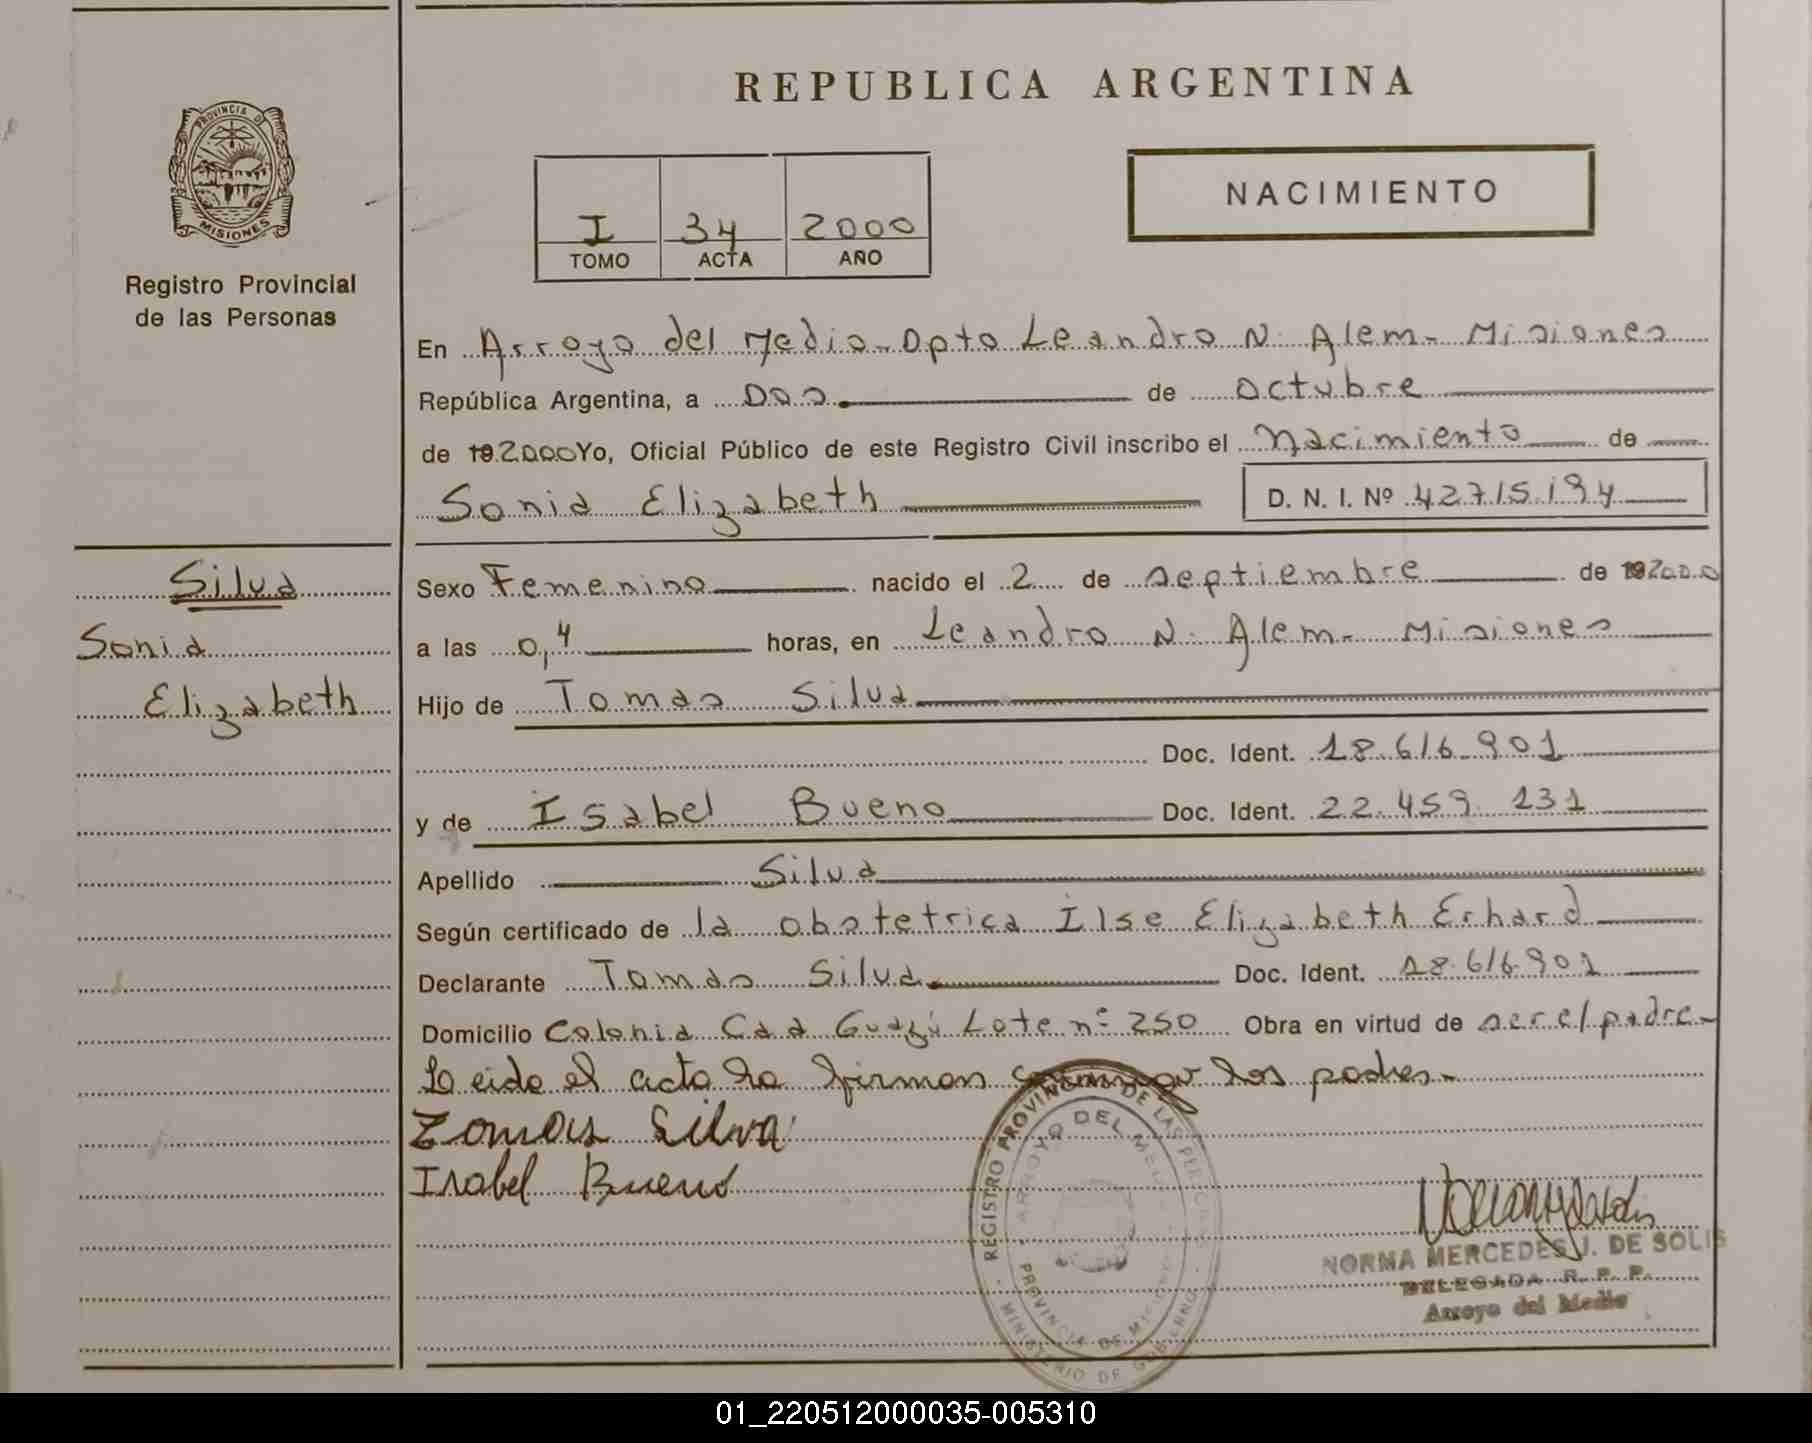 REPUBLICA ARGENTINA
PROVINCIA D
MISIONES
Registro Provincial
de las Personas
I 34 2000
TOMO ACTA AÑO
NACIMIENTO
En Arroyo del Medio - Dpto Leandro N. Alem - Misiones
República Argentina, a Dos de octubre
de 19 2000 Yo, Oficial Público de este Registro Civil inscribo el Nacimiento de
Sonia Elizabeth D. N. I. Nº 42715.194
Silva
Sonia
Elizabeth
Sexo Femenino nacido el 2 de septiembre de 19 2000
a las 0,4 horas, en Leandro N. Alem - Misiones
Hijo de Tomas Silva
Doc. Ident. 18.616.901
y de Isabel Bueno Doc. Ident. 22.459.131
Apellido Silva
Según certificado de la obstetrica Ilse Elizabeth Erhard
Declarante Tomas Silva Doc. Ident. 18.616.901
Domicilio Colonia Caa Guazú Lote nº 250 Obra en virtud de ser el padre -
Leida el acta la firman conmigo los padres -
Tomas Silva
Isabel Bueno
REGISTRO PROVINCIAL DE LAS PERSONAS
ARROYO DEL MEDIO
PROVINCIA DE MISIONES
MINISTERIO DE GOBIERNO
NORMA MERCEDES J. DE SOLIS
DELEGADA R. P. P.
Arroyo del Medio
01_220512000035-005310